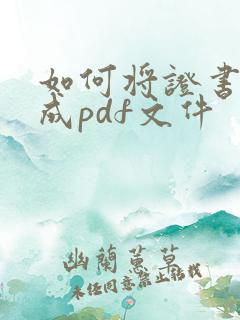 如何将證書
成pdf文件
幽蘭蕙草
未经同意禁止转载